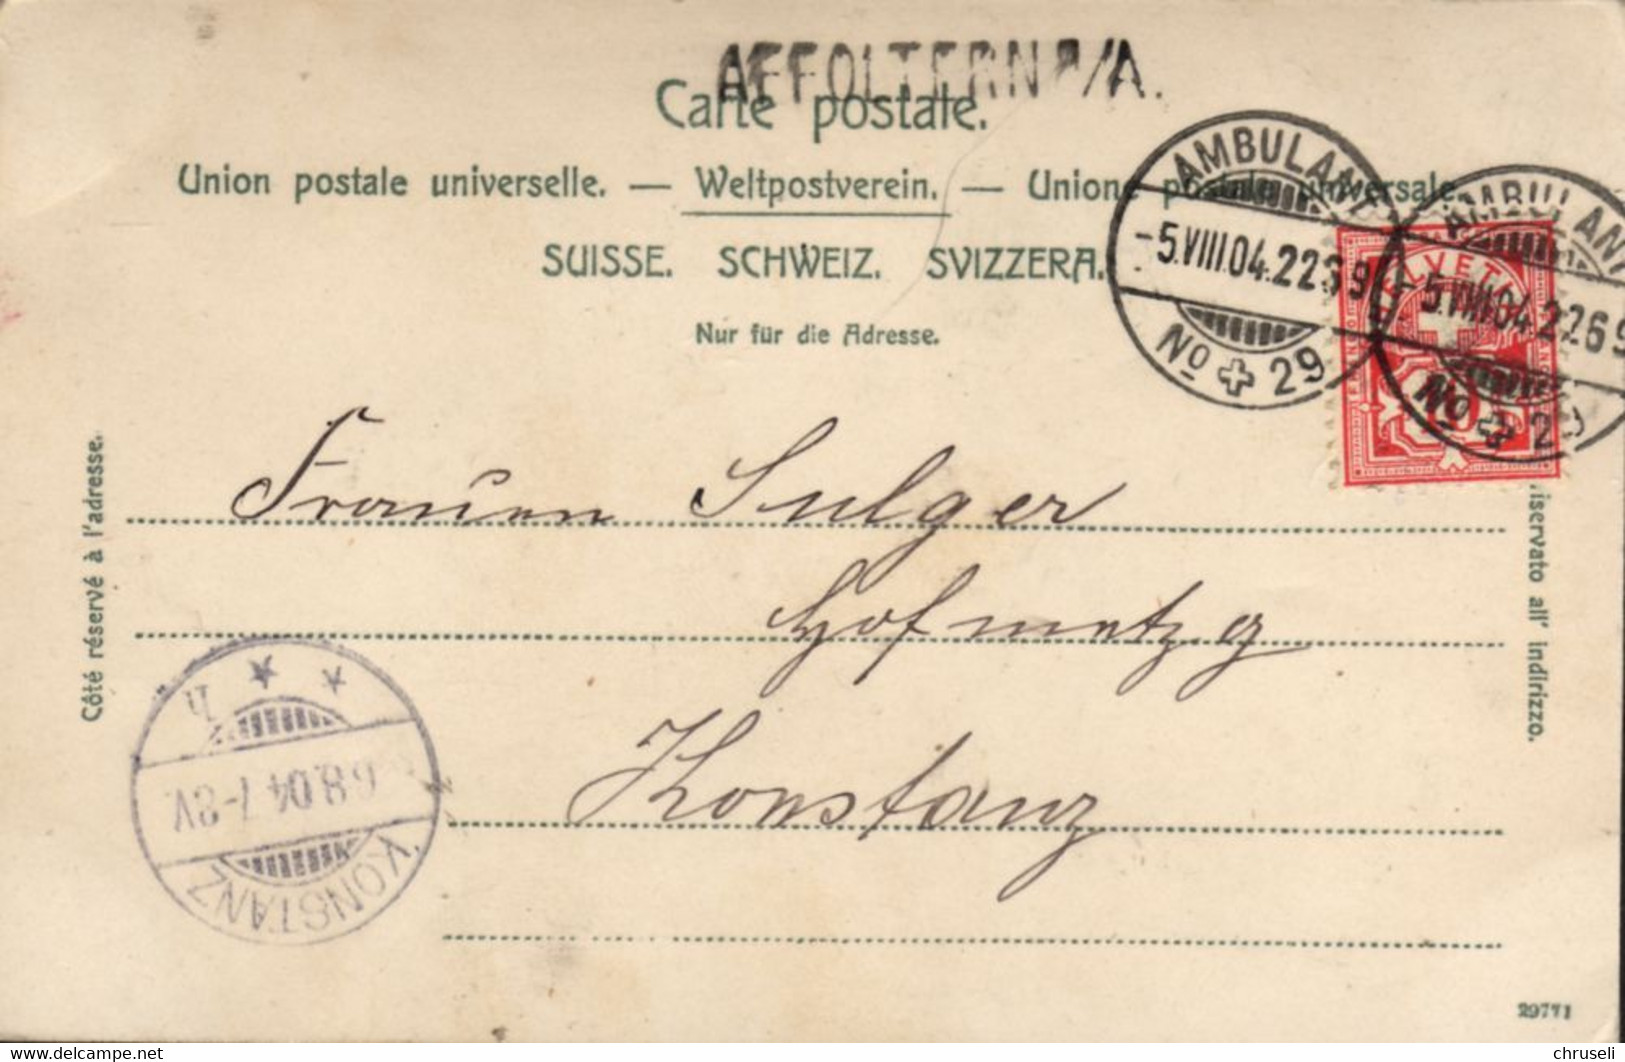 AFFOLTERN a/A.
Carte postale.
Union postale universelle. — Weltpostverein. — Unione postale universale.
SUISSE. SCHWEIZ. SVIZZERA.
Nur für die Adresse.
AMBULANT
-5.VIII.04.2269
No 29
AMBULANT
-5.VIII.04.2269
No 29
HELVETIA
FRANCO
10
Côté réservé à l'adresse.
riservato all' indirizzo.
Frauen Sulger
Hofmetzg
Konstanz
6.8.04.7-8V.
KONSTANZ
29771
delcampe.net
chruseli